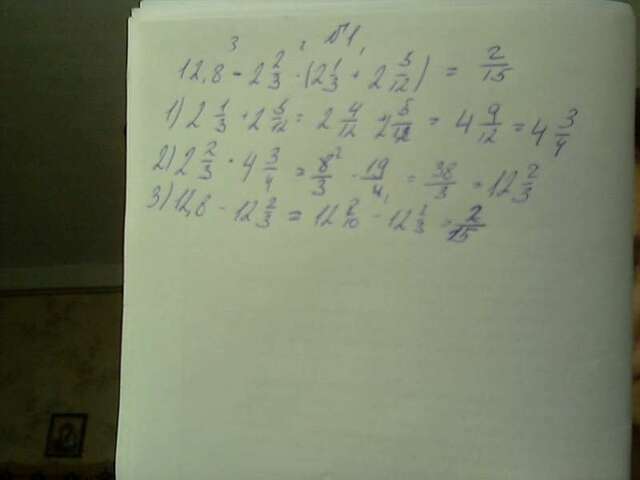 №1
3 2 1
12,8 - 2 2/3 · (2 1/3 + 2 5/12) = 2/15
1) 2 1/3 + 2 5/12 = 2 4/12 + 2 5/12 = 4 9/12 = 4 3/4
2) 2 2/3 · 4 3/4 = 8/3 · 19/4 = 38/3 = 12 2/3
3) 12,8 - 12 2/3 = 12 8/10 - 12 2/3 = 2/15